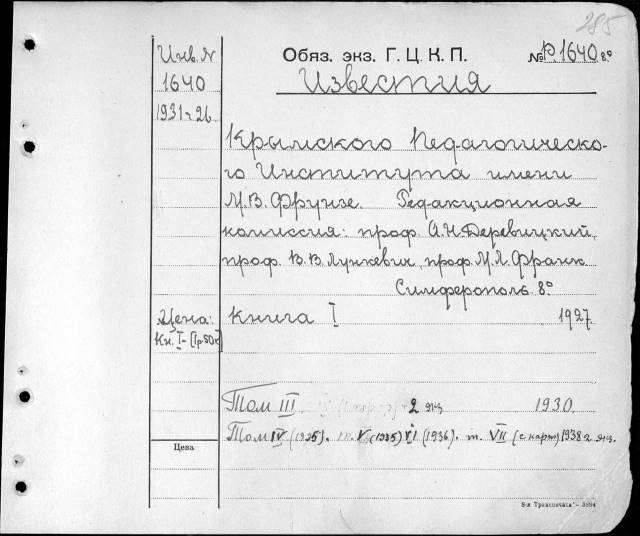 285
Инв. N
1640
1931 г. 26
Обяз. экз. Г. Ц. К. П.
№ Р. 1640 8°
Известия
Крымского Педагогическо-
го Института имени
М.В. Фрунзе. Редакционная
комиссия: проф. А.Н. Деревицкий,
проф. В.В. Лункевич, проф. М.Л. Франк
Симферополь. 8°
Цена:
Кн. I - [1 р. 50 к]
Книга I 1927.
Том III 2 экз 1930.
Том IV (1935). т. V (1935) VI (1936). т. VII (с карт) 1938 2 экз.
Цена
8-я Транспечать - 3594